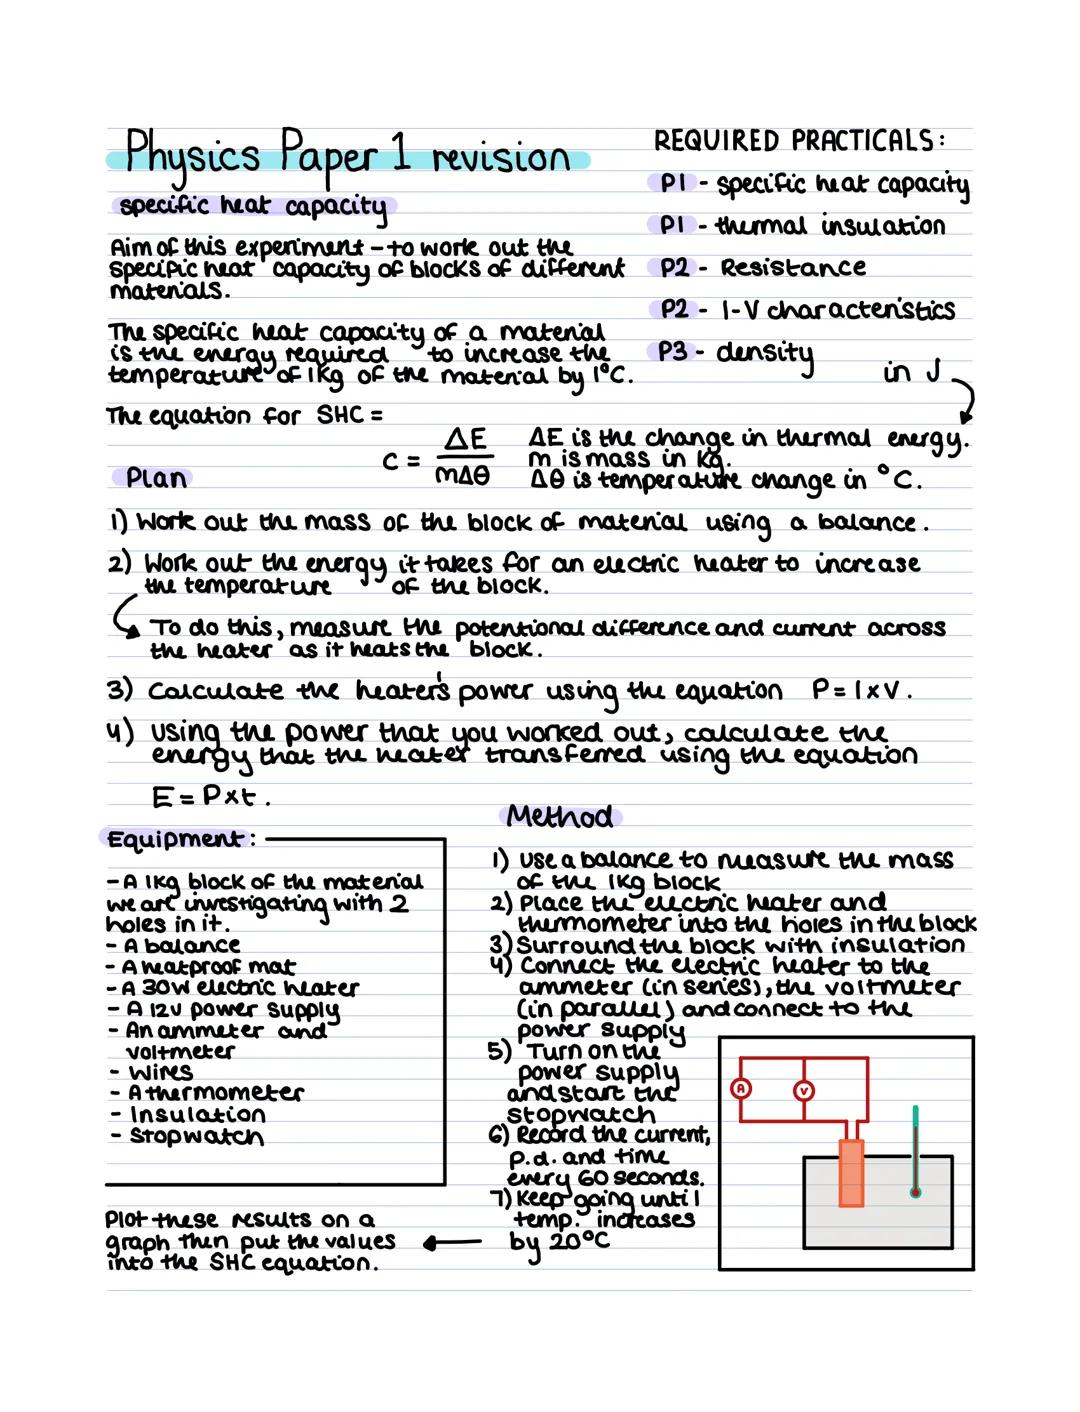 Physics Paper 1 revision
REQUIRED PRACTICALS:
P1 - specific heat capacity
P1 - thermal insulation
P2 - Resistance
P2 - I-V characteristics
P3 - density
specific heat capacity
Aim of this experiment - to work out the
specific heat capacity of blocks of different
materials.
The specific heat capacity of a material
is the energy required to increase the
temperature of 1Kg of the material by 1°C.
in J
The equation for SHC =
C = ΔE / mΔθ
ΔE is the change in thermal energy.
m is mass in Kg.
Δθ is temperature change in °C.
Plan
1) Work out the mass of the block of material using a balance.
2) Work out the energy it takes for an electric heater to increase
the temperature of the block.
To do this, measure the potentional difference and current across
the heater as it heats the block.
3) Calculate the heater's power using the equation P = I x V.
4) Using the power that you worked out, calculate the
energy that the heater transferred using the equation
E = P x t.
Equipment:
- A 1Kg block of the material
we are investigating with 2
holes in it.
- A balance
- A heatproof mat
- A 30W electric heater
- A 12V power supply
- An ammeter and
voltmeter
- Wires
- A thermometer
- Insulation
- Stopwatch
Method
1) Use a balance to measure the mass
of the 1Kg block
2) Place the electric heater and
thermometer into the holes in the block
3) Surround the block with insulation
4) Connect the electric heater to the
ammeter (in series), the voltmeter
(in parallel) and connect to the
power supply
5) Turn on the
power supply
and start the
stopwatch
6) Record the current,
p.d. and time
every 60 seconds.
7) Keep going until
temp. increases
by 20°C
A
V
Plot these results on a
graph then put the values
into the SHC equation.